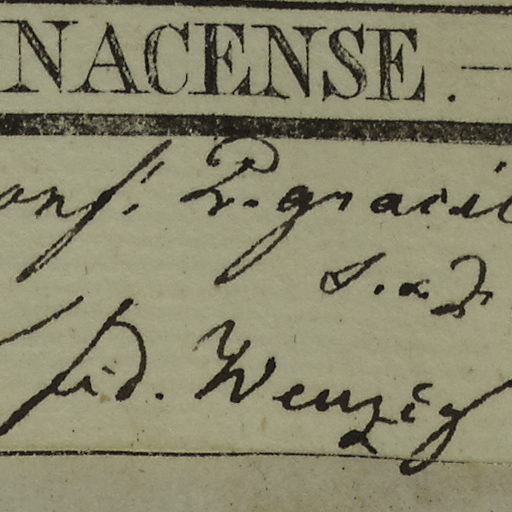 NACENSE.
onf: P. gracil
s. a F.
fid. Wenzig